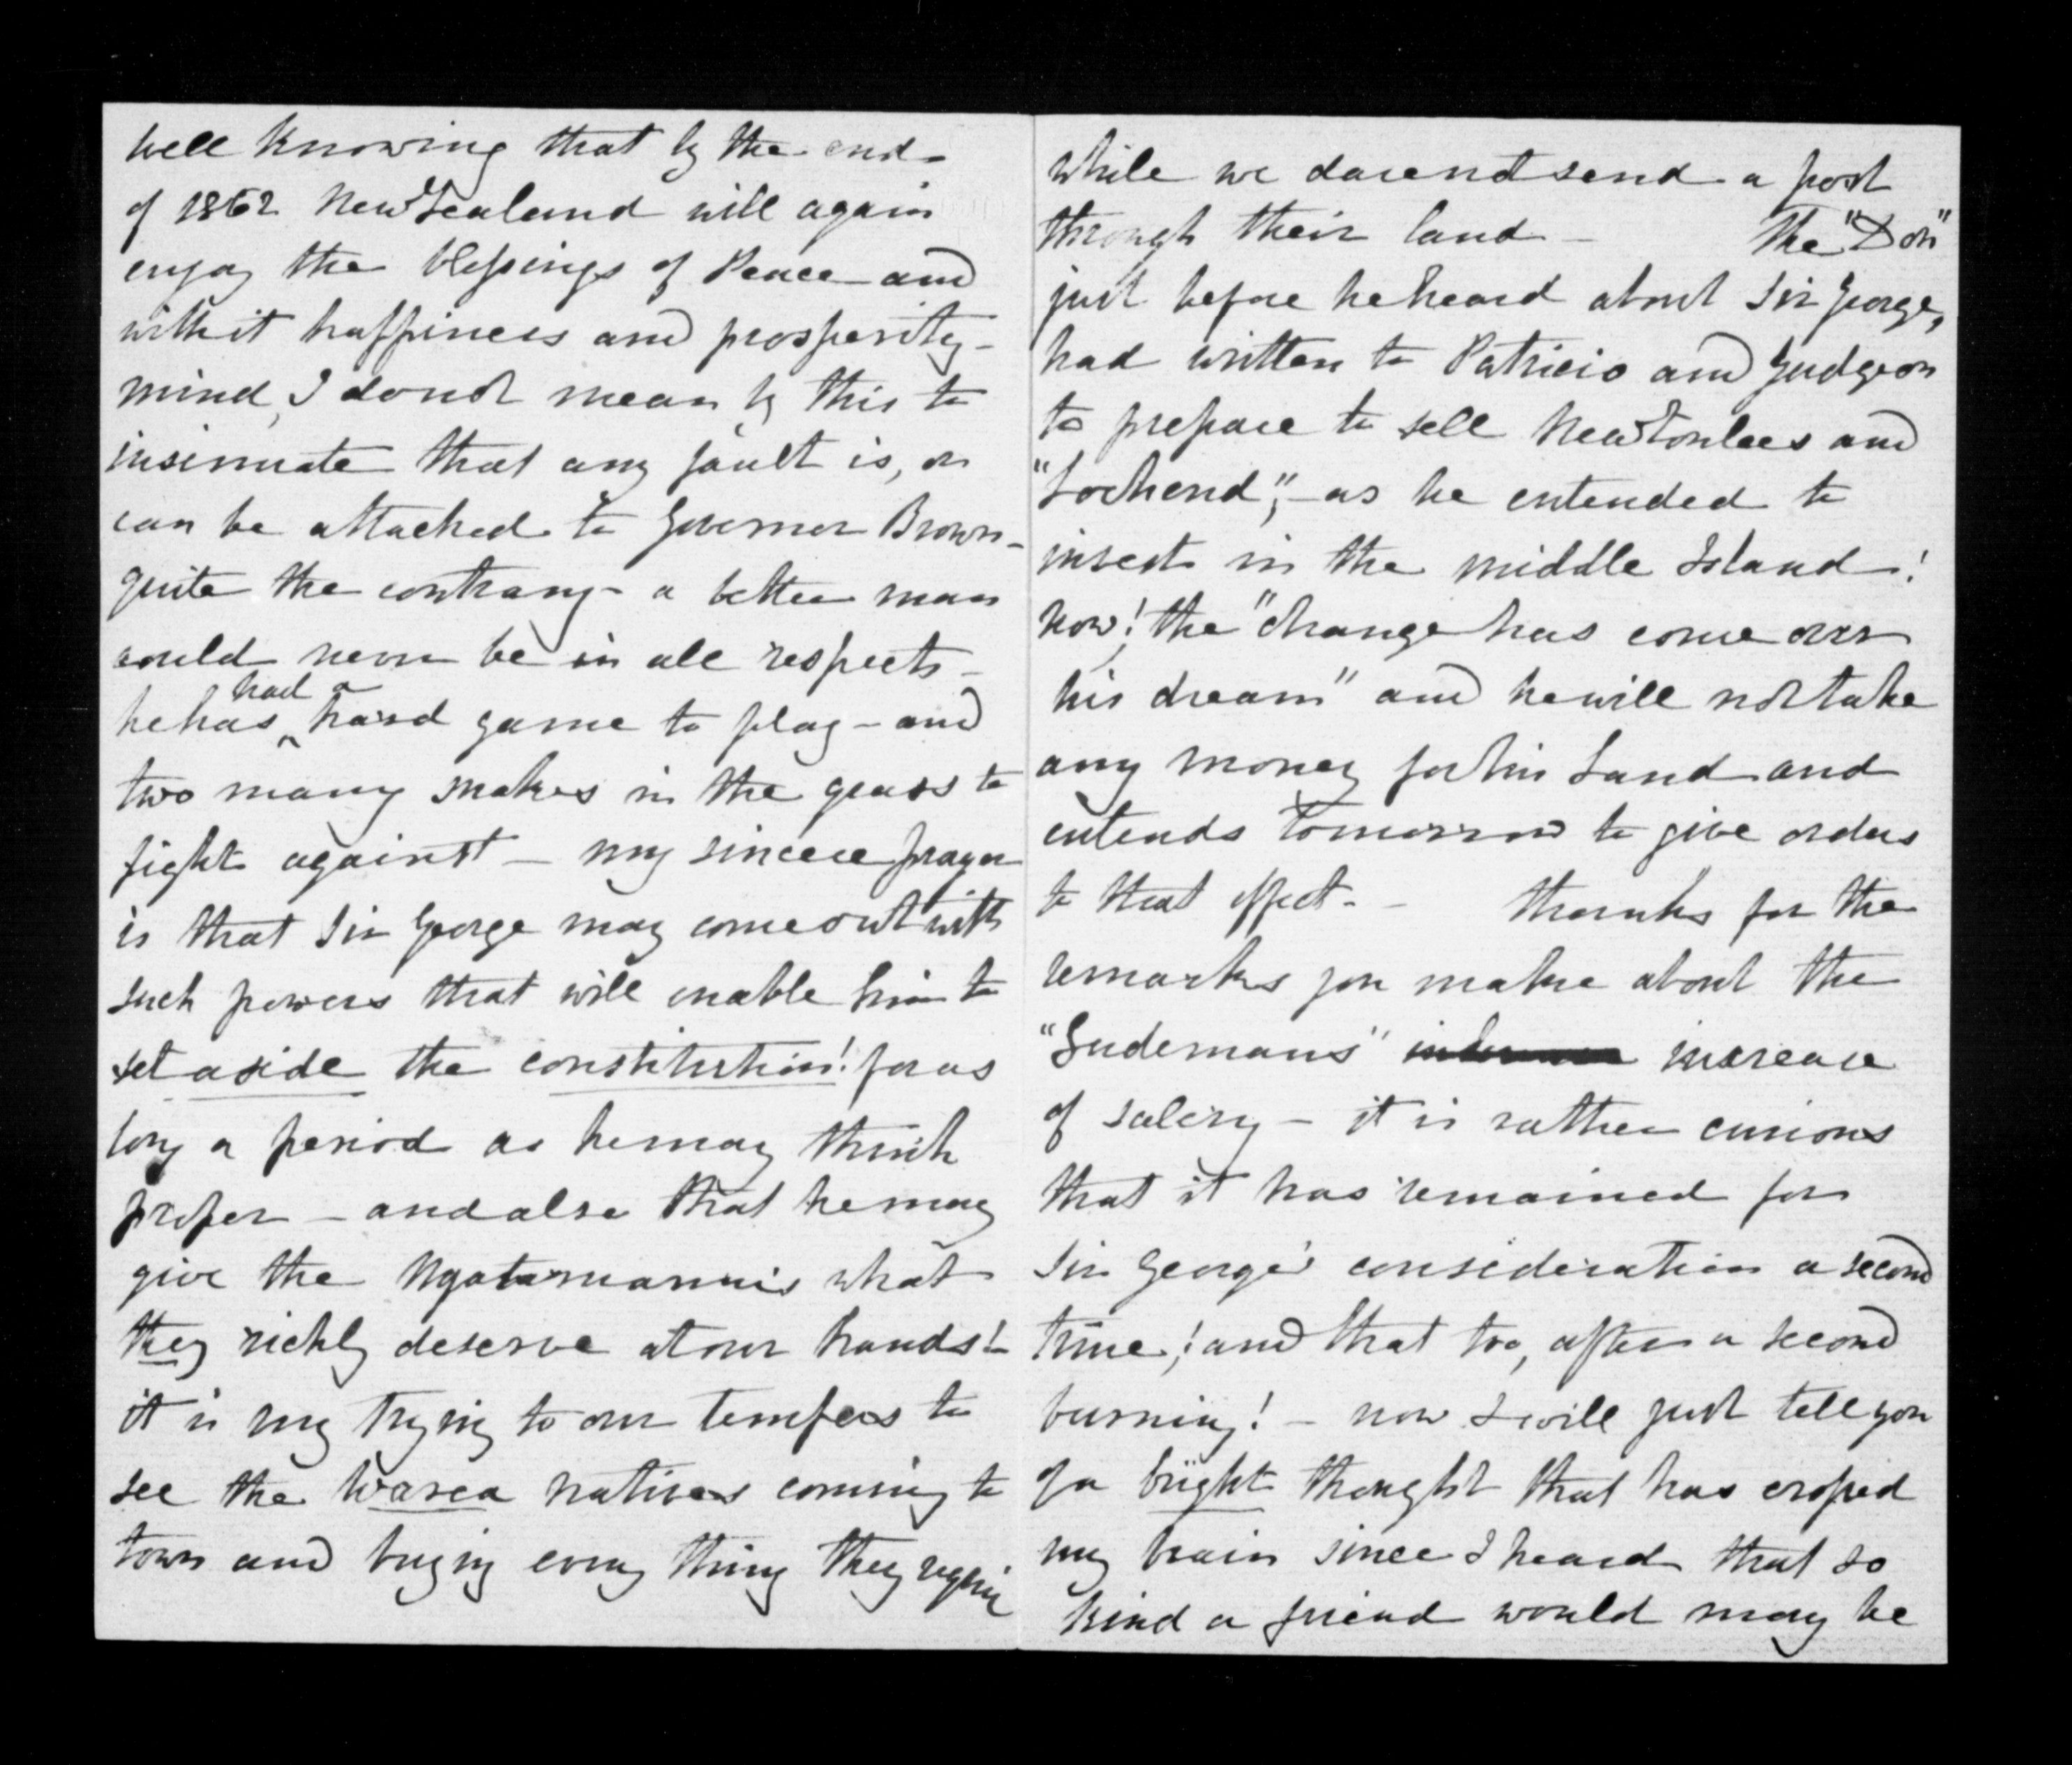 well knowing that by the end
of 1862 New Zealand will again
enjoy the blessings of Peace and
with it happiness and prosperity -
mind, I donot mean by this to
insinuate that any fault is, or
can be attached to Governor Brown -
quite the contrary - a better man
could never be in all respects -
he has had a hard game to play - and
two many snakes in the grass to
fight against - my sincere prayer
is that Sir George may come out with
such powers that will enable him to
set aside the constitution! for as
long a period as he may think
proper - and also that he may
give the Ngatiruanuis what
they richly deserve at our hands! -
it is very trying to our tempers to
see the Warea natives coming to
town and buying every thing they require
while we darendt send a post
through their land - The "Don"
just before he heard about Sir George,
had written to Patricio and Gudgeon
to prepare to sell Newtonlees and
"Lochend", - as he entended to
invest in the middle Island!
now! the "change has come over
his dream" and he will not take
any money for his Land and
entends tomorrow to give orders
to that effect. - thanks for the
remarks you make about the
"Sudemans" increase
of salery - it is rather curious
that it has remained for
Sir George's consideration a second
time,! and that too, after a second
burning! - now I will just tell you
of a bright thought that has cropied
my brain since I heard that so
kind a friend would may be